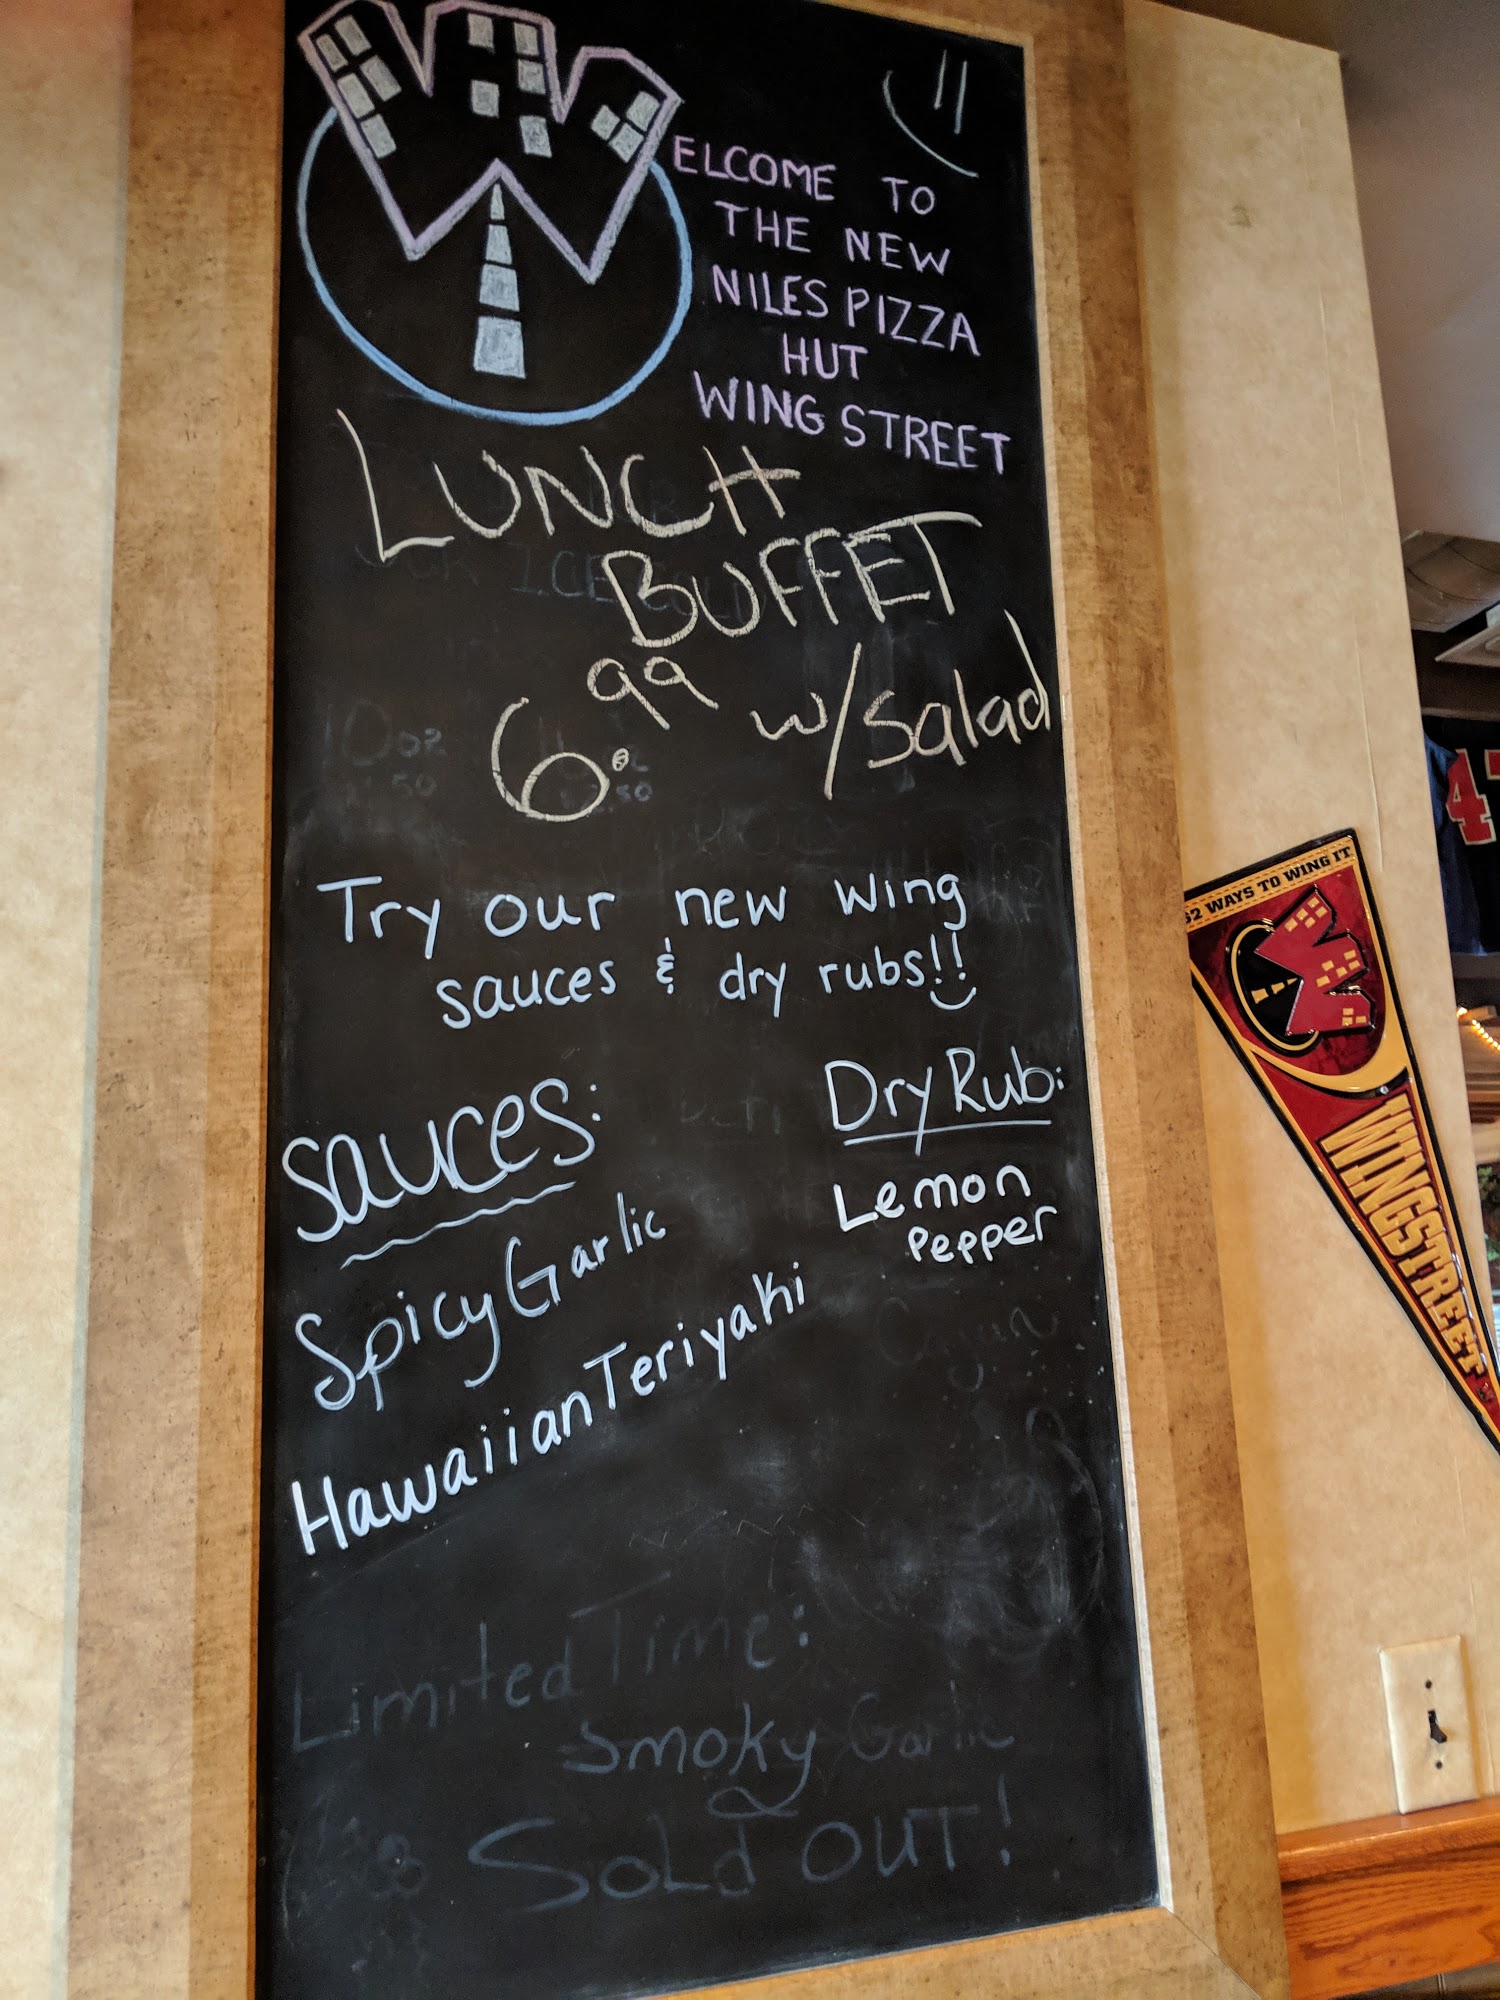 WELCOME TO
THE NEW
NILES PIZZA
HUT
WING STREET
LUNCH
BUFFET
6.99 w/salad
Try our new wing
sauces & dry rubs!!
Sauces:
Spicy Garlic
Hawaiian Teriyaki
Dry Rub:
Lemon
Pepper
Cajun
Limited Time:
Smoky Garlic
Sold OUT!
WAYS TO WING IT
WINGSTREET
4